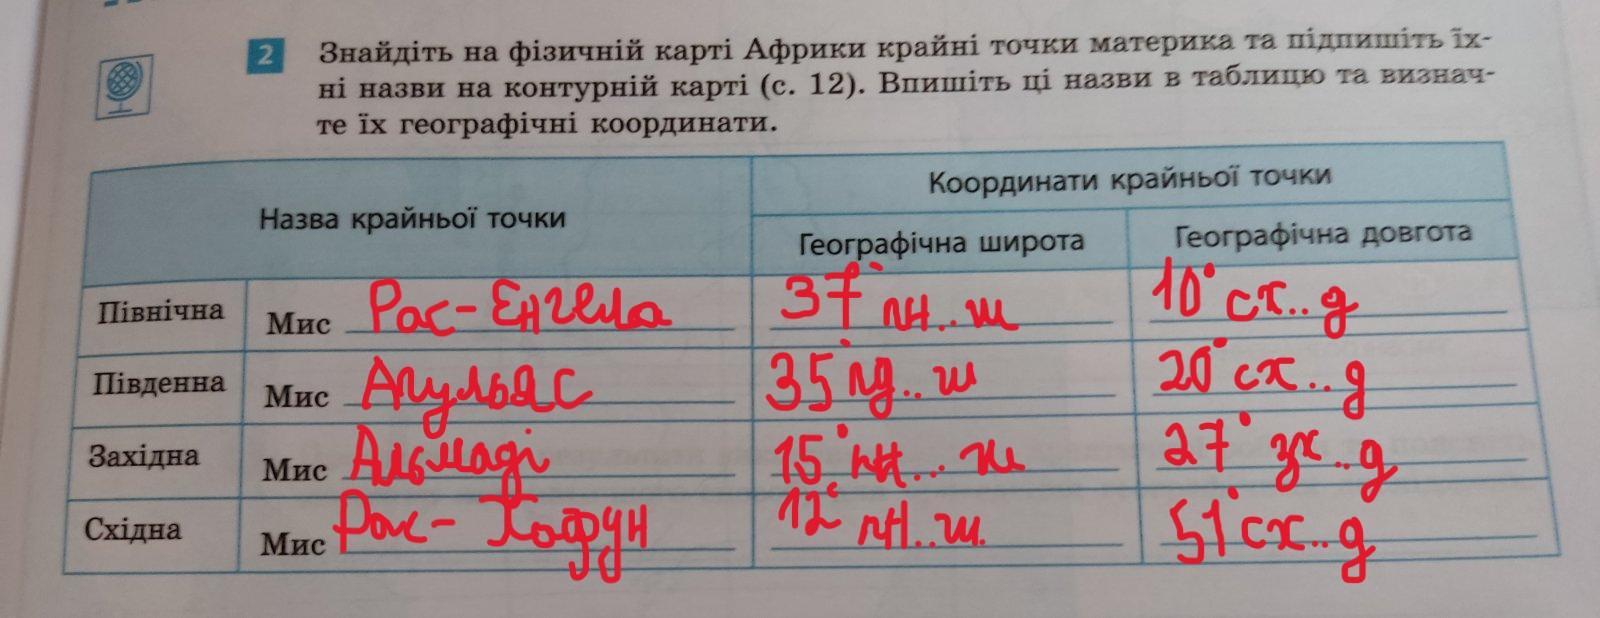 2 Знайдіть на фізичній карті Африки крайні точки материка та підпишіть їх-
ні назви на контурній карті (с. 12). Впишіть ці назви в таблицю та визнач-
те їх географічні координати.
Назва крайньої точки Координати крайньої точки
Географічна широта Географічна довгота
Північна Мис Рас-Енгела 37° пн..ш 10° сх..д
Південна Мис Агульяс 35° пд..ш 20° сх..д
Західна Мис Альмаді 15° пн...ш 27° зх..д
Східна Мис Рас-Хафун 12° пн..ш. 51° сх..д